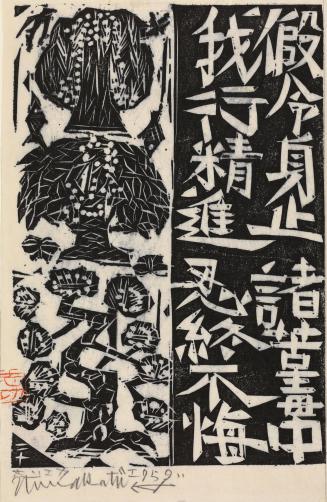 假令身止諸苦毒中
我行精進忍終不悔
1959